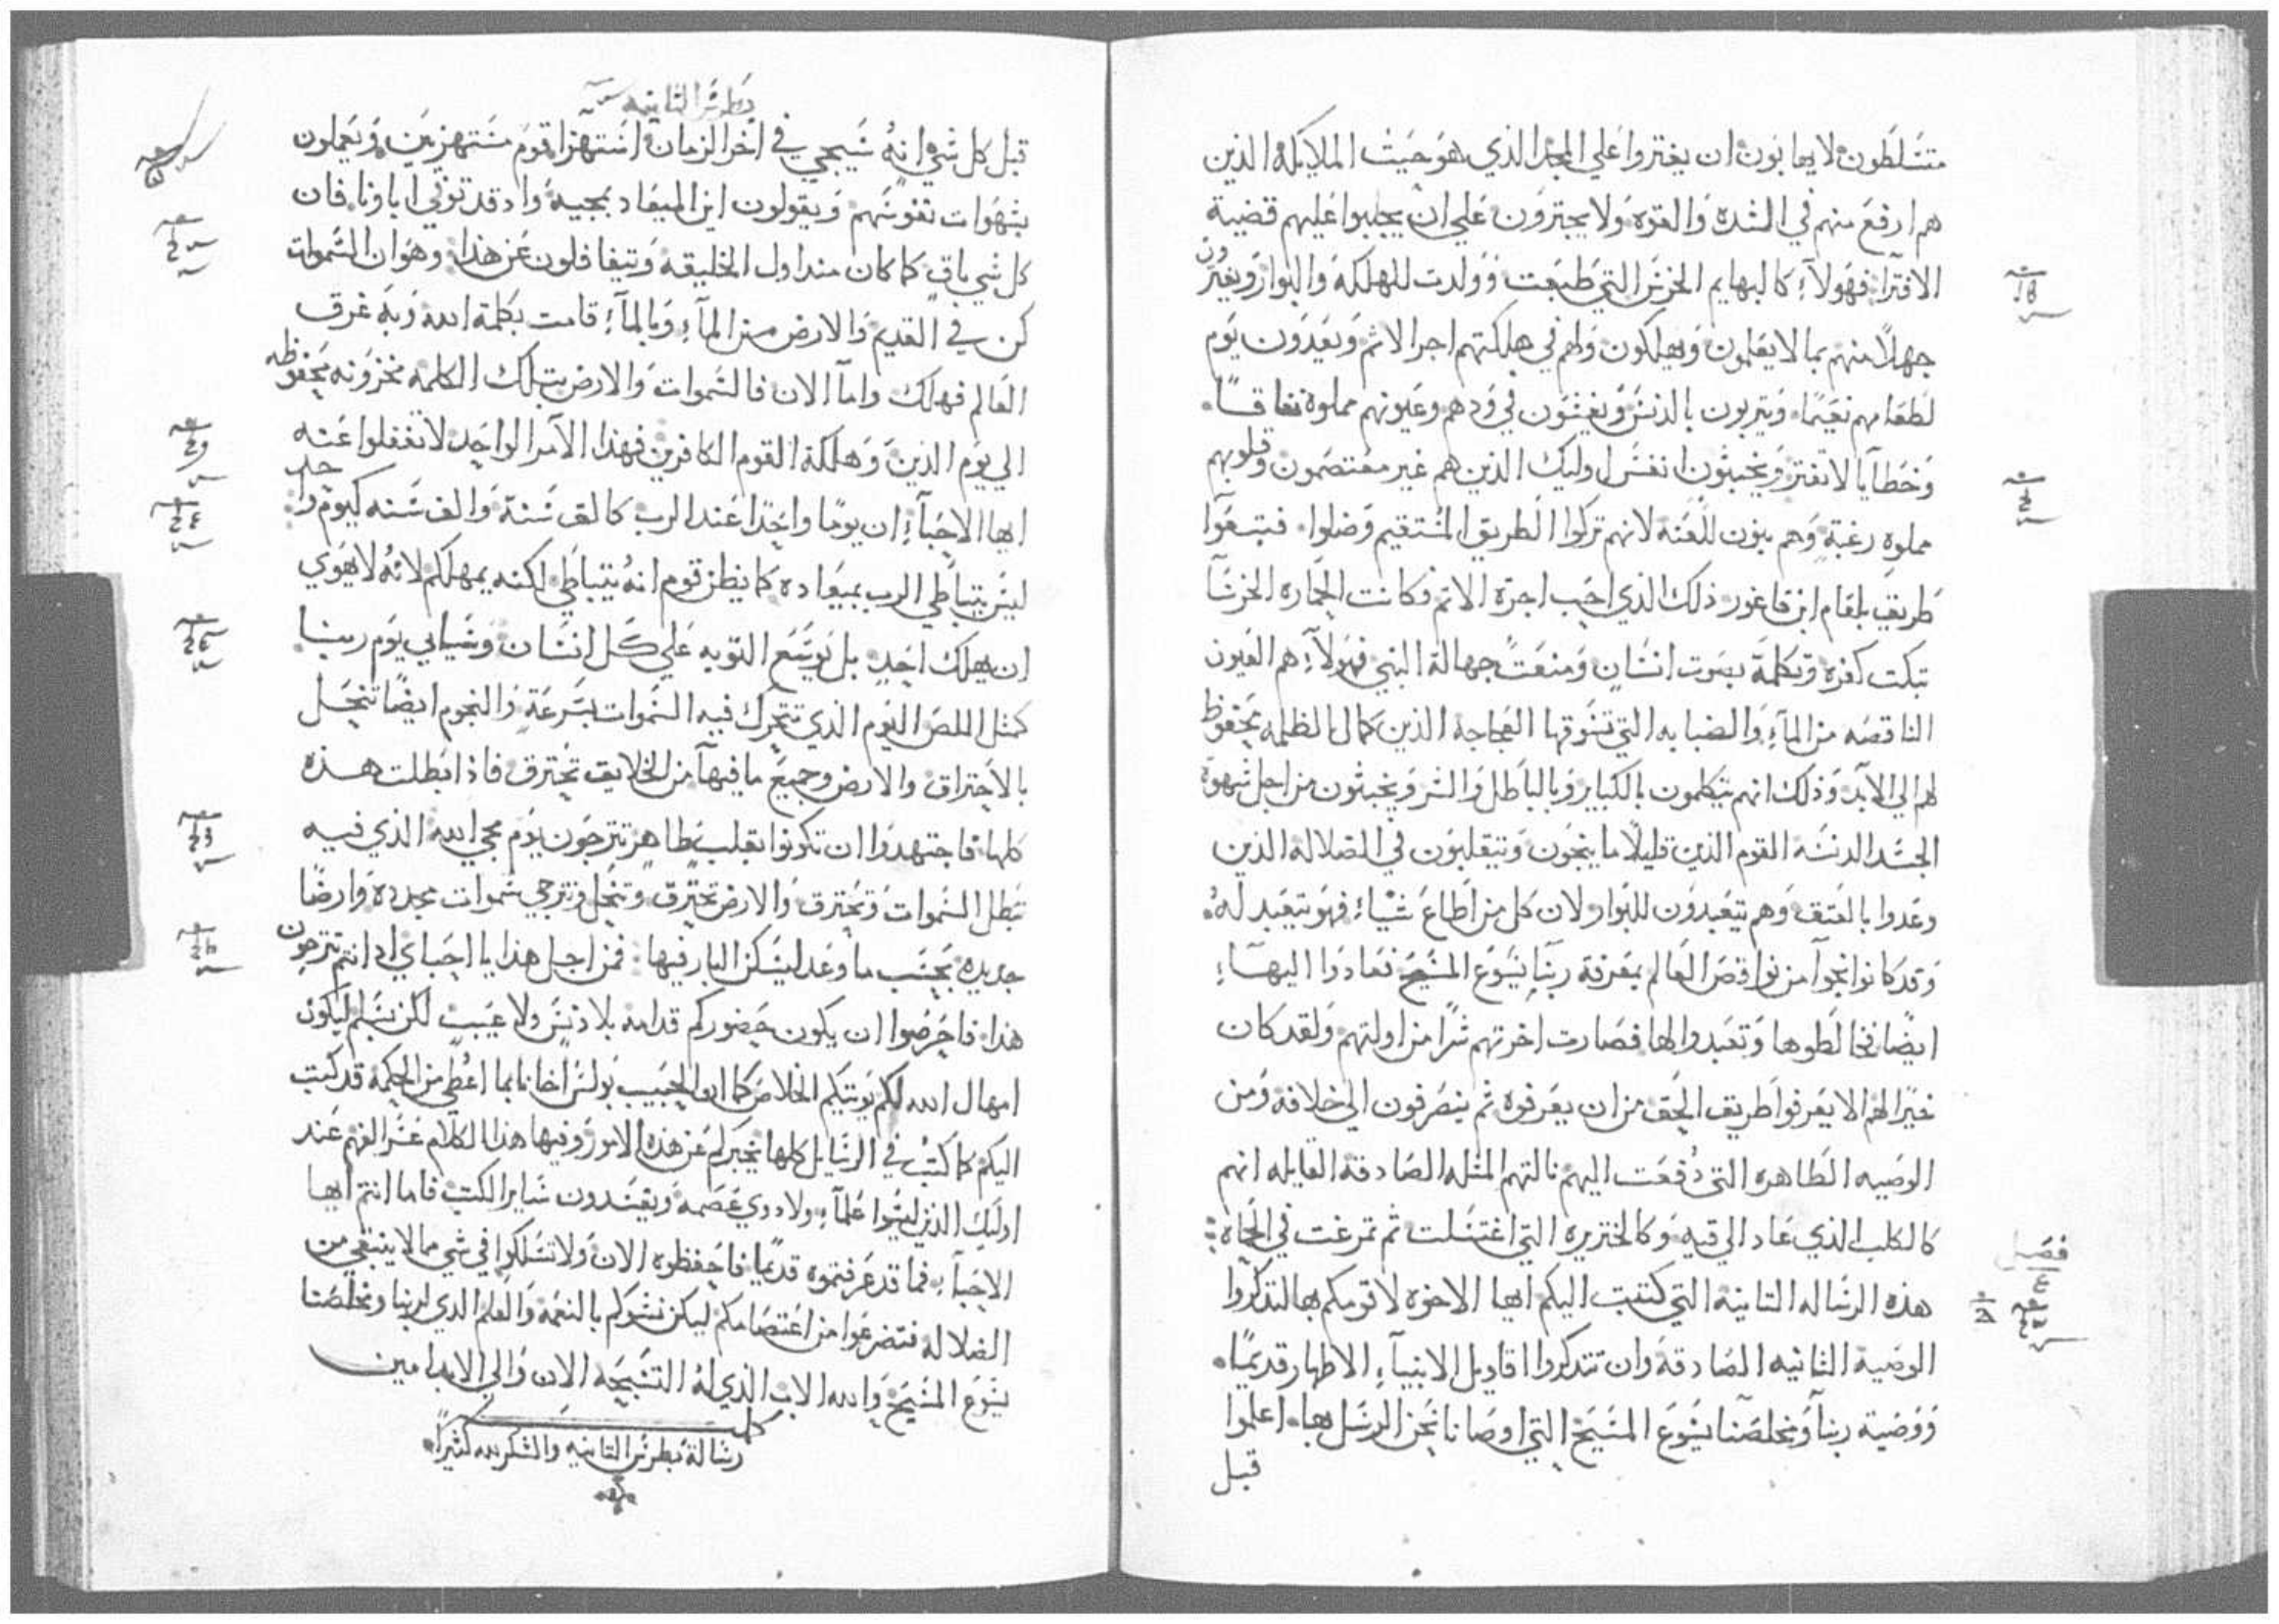 متسلطون لا يهابون ان يفتروا علي المجد الذي هو حيث الملايكه الذين
هم ارفع منهم في الشده والقوه ولا يجترون علي ان يجلبوا عليهم قضية
الافترا فهولاء كالبهايم الخرس التي طبعت وولدت للهلكة والبوار ويفترون
جهلا منهم بما لا يعلمون ويهلكون ولهم في هلكتهم اجر الاثم ويعدون يوم
لطعامهم نعيما ويتربون بالدنس ويغشون في ودهم وعيونهم مملوة نفاقا
وخطايا لا تفتر ويخبثون انفس اوليك الذين هم غير معتصمون وقلوبهم
مملوه رغبة وهم بنون للعنه لانهم تركوا الطريق المستقيم وضلوا فتبعوا
طريق بلعام ابن فاغور ذلك الذي احب اجرة الاثم وكانت الحماره الخرسا
تبكت كفره وتكلمة بصوت انسان ومنعت جهالة النبي فهولاء هم العيون
الناقصه من الماء والضبابه التي تسوقها العجاجة الذين كمال الظلمه محفوظ
لهم الي الابد وذلك انهم يتكلمون بالكباير وبالباطل والشر ويخبثون من اجل شهوة
الجسد الدنسه القوم الذين قليلا ما ينجون ويتقلبون في الضلاله الذين
وعدوا بالعتق وهم يتعبدون للبوار ولان كل من اطاع شياء فهو يتعبد له
وقد كانوا نجوا من نواقص العالم بمعرفة ربنا يسوع المسيح فعادوا اليهاء
ايضا فخالطوها وتعبدوا لها فصارت اخرتهم شرا من اولتهم ولقد كان
خيرا لهم الا يعرفوا طريق الحق من ان يعرفوه ثم ينصرفون الي خلافه ومن
الوصيه الطاهره التي دفعت اليهم نالتهم المثله الصادقة القايله انهم
كالكلب الذي عاد الي قيه وكالخنزيره التي اغتسلت ثم تمرغت في الحماه
فصل
هذه الرساله الثانيه التي كتبت اليكم ايها الاخوه لاقومكم بها لتذكروا
الوصية الثانيه الصادقة وان تتذكروا اقاويل الانبياء الاطهار قديما
ووصية ربنا ومخلصنا يسوع المسيح التي اوصانا نحن الرسل بها اعلموا
قبل
بطرس الثانيه
قبل كل شي انه سيجي في اخر الزمان استهزا قوم مستهزيين ويعملون
بشهوات نفوسهم ويقولون اين الميعاد بمجيه واذ قد توفي اباونا فان
كل شي باق كما كان منذ اول الخليقه ويتغافلون عن هذا وهو ان السموات
كن في القديم والارض من الماء وبالماء قامت بكلمة الله وبه غرق
العالم فهلك واما الان فالسموات والارض بتلك الكلمه مخزونه محفوظه
الي يوم الدين وهلكة القوم الكافرين فهذا الامر الواحد لا تغفلوا عنه
ايها الاحباء ان يوما واحدا عند الرب كالف سنة والف سنه كيوم واحد
ليس يتباطي الرب بميعاده كما يظن قوم انه يتباطي لكنه يمهلكم لانه لا يهوي
ان يهلك احد بل يوسع التوبه علي كل انسان وسياتي يوم ربنا
كمثل اللص اليوم الذي تتحرك فيه السموات بسرعة والنجوم ايضا تنحل
بالاحتراق والارض وجميع ما فيها من الخلايق تحترق فاذا بطلت هذه
كلها فاجتهدوا ان تكونوا بقلب طاهر تترجون يوم مجي الله الذي فيه
تبطل السموات وتحترق والارض تحترق وتنحل ونترجي سموات مجدده وارضا
جديده بحسب ما وعد ليسكن البار فيها فمن اجل هذا يا احباي اذ انتم تترجون
هذا فاحرصوا ان يكون حضوركم قدامه بلا دنس ولا عيب لكن نسلم ليكون
امهال الله لكم يوتيكم الخلاص كما ان الحبيب بولس اخانا بما اعطي من الحكمة قد كتب
اليكم كما كتب في الرسايل كلها يخبركم عن هذه الامور وفيها هذا الكلام عسر الفهم عند
اوليك الذين ليسوا علماء ولا ذوي عصمه ويفسدون ساير الكتب فاما انتم ايها
الاحباء فما قد عرفتموه قديما فاحفظوه الان ولا تسلكوا في شي مما لا ينبغي من
الضلاله فتضرعوا من اعتصامكم ليكن نشوكم بالنعمة والعلم الذي لربنا ومخلصنا
يسوع المسيح والله الاب الذي له التسبحه الان والي الابد امين
كمل
رسالة بطرس الثانيه والشكر لله كثيرا